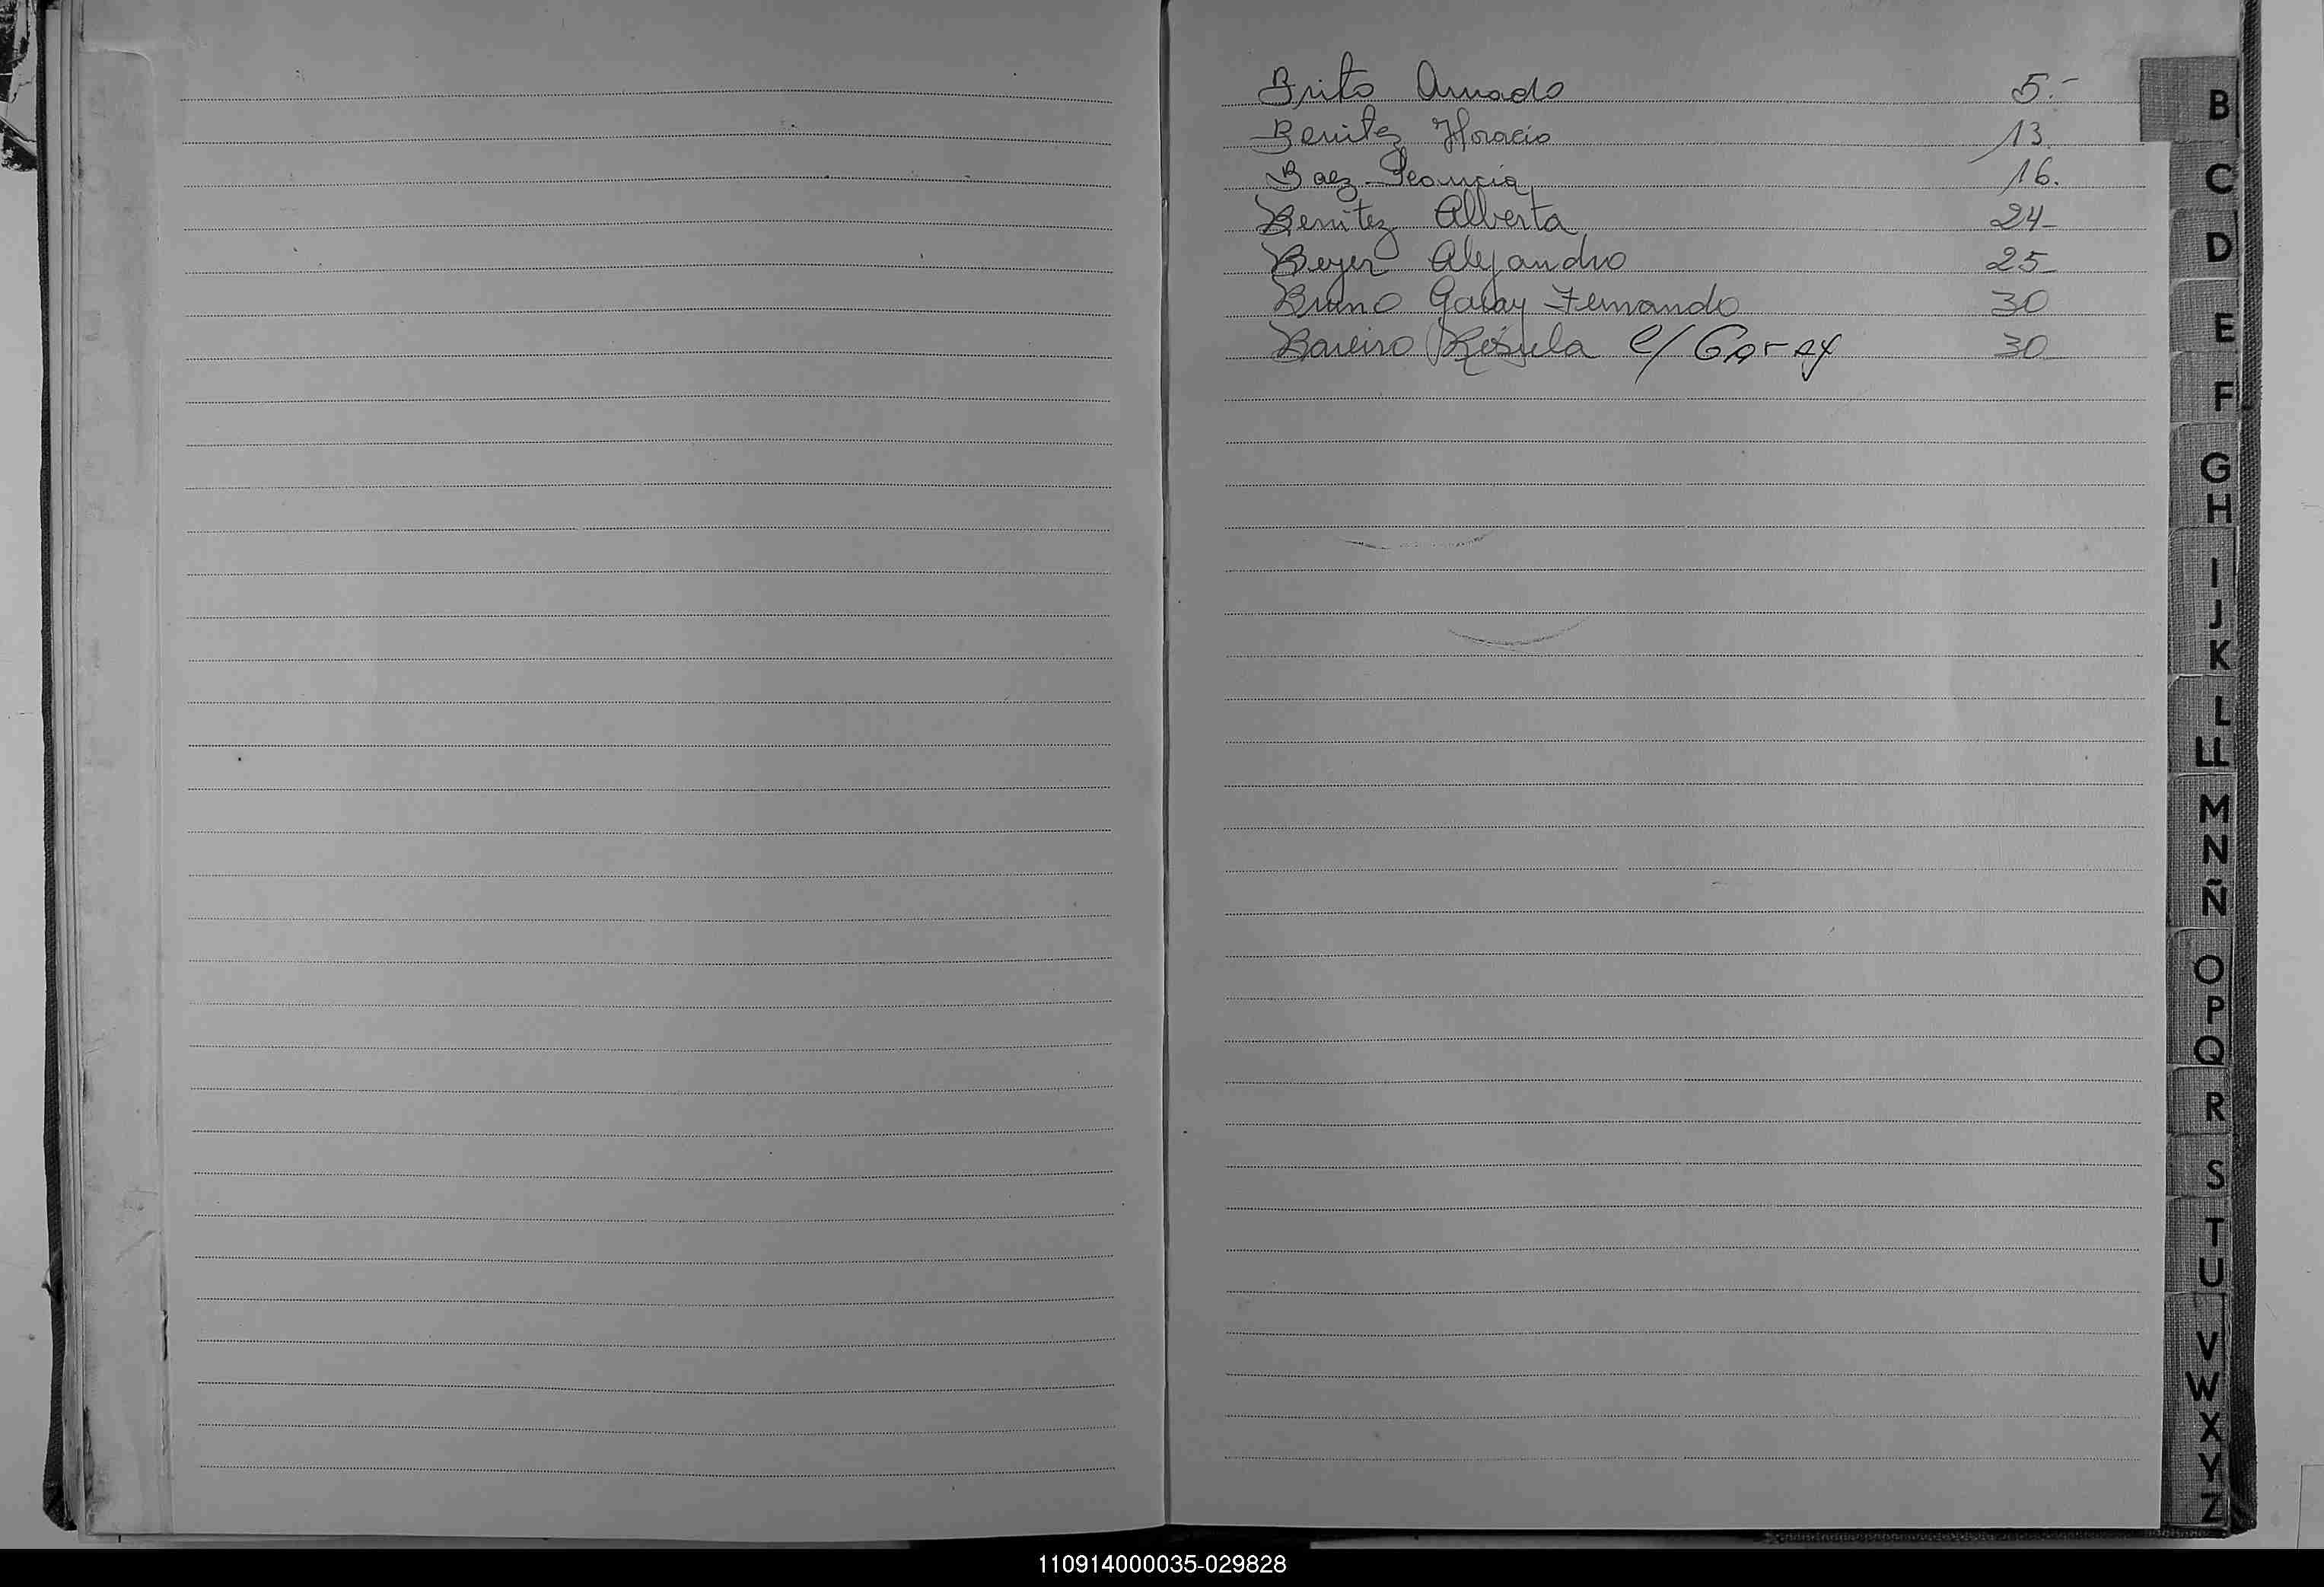 Brito Amado 5.-
Benitez Horacio 13.
Baez 16.
Benitez Alberta 24-
Beyer Alejandro 25-
Bruno Garay Fernando 30
Bareiro Rósula c/ Garay 30-
B
C
D
E
F
G
H
I
J
K
L
LL
M
N
Ñ
O
P
Q
R
S
T
U
V
W
X
Y
Z
110914000035-029828